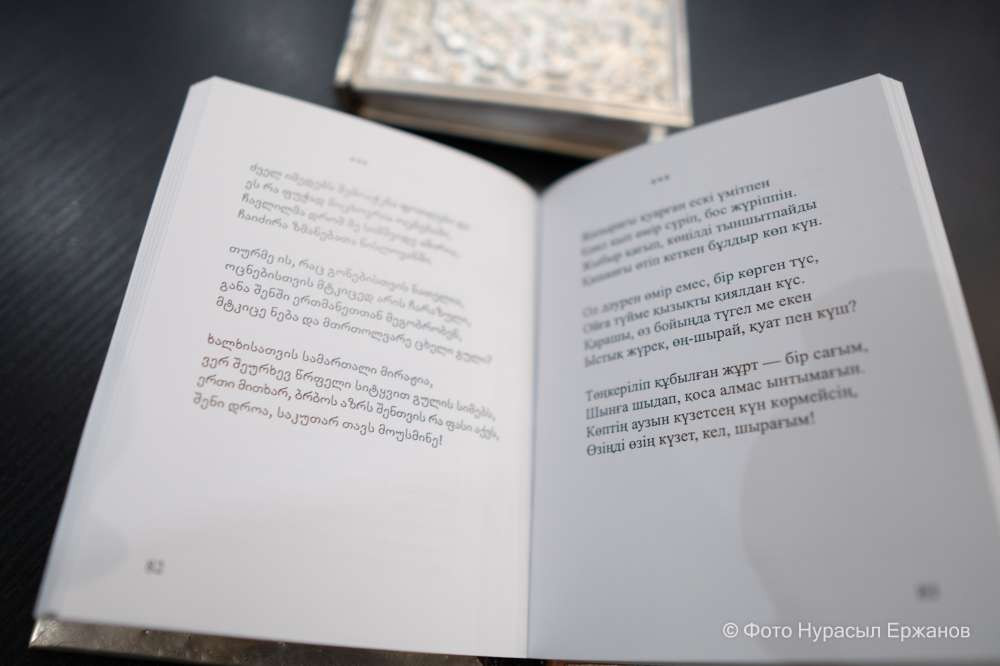 ***
ძველ იმედებს
ეს რა ფუჭად
ჩავლილმა დრომ მე
ჩაიძირა ზმანებათა
თურმე ის, რაც გონებისთვის
ოცნებისთვის მტკიცედ არის ჩარაზული,
განა შენში ერთმანეთთან მეგობრობენ,
მტკიცე ნება და მთრთოლვარე ცხელი გული?
ხალხისათვის სამართალი მირაჟია,
ვერ შეურხევ წრფელი სიტყვით გულის სიმებს,
ერთი მითხარ, ბრბოს აზრს შენთვის რა ფასი აქვს,
შენი დროა, საკუთარ თავს მოუსმინე!
82
***
қуарған ескі үмітпен
өмір сүріп, бос жүріппін.
қағып, көңілді тыншытпайды
өтіп кеткен бұлдыр көп күн.
Ол дәурен өмір емес, бір көрген түс,
Ойға түйме қызықты қиялдан күс.
Қарашы, өз бойыңда түгел ме екен
Ыстық жүрек, өң-шырай, қуат пен күш?
Төңкеріліп құбылған жұрт — бір сағым,
Шынға шыдап, қоса алмас ынтымағын.
Көптің аузын күзетсең күн көрмейсің,
Өзіңді өзің күзет, кел, шырағым!
© Фото Нурасыл Ержанов